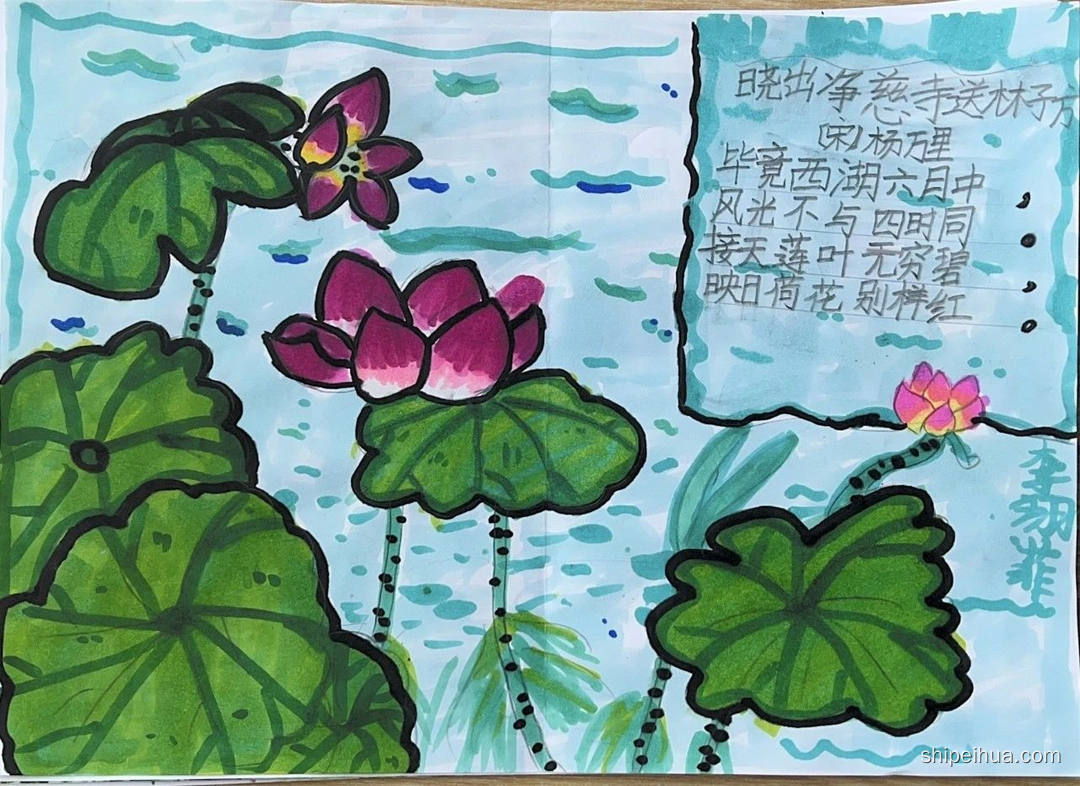 晓出净慈寺送林子方
[宋]杨万里
毕竟西湖六月中，
风光不与四时同。
接天莲叶无穷碧，
映日荷花别样红。
李翊菲
shipeihua.com